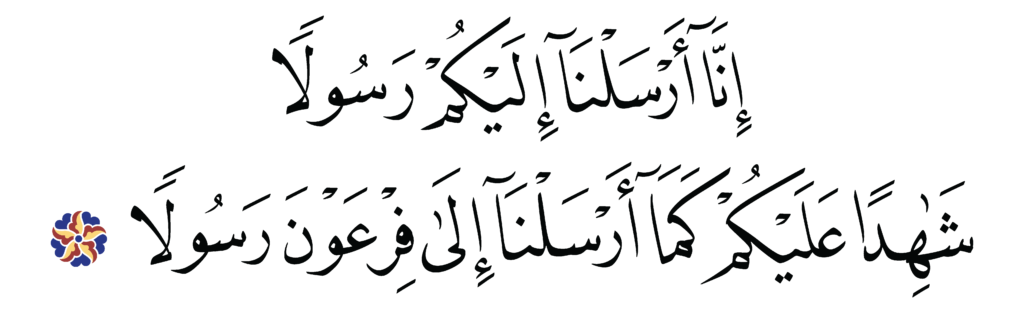 إِنَّآ أَرْسَلْنَآ إِلَيْكُمْ رَسُولًا
شَٰهِدًا عَلَيْكُمْ كَمَآ أَرْسَلْنَآ إِلَىٰ فِرْعَوْنَ رَسُولًا